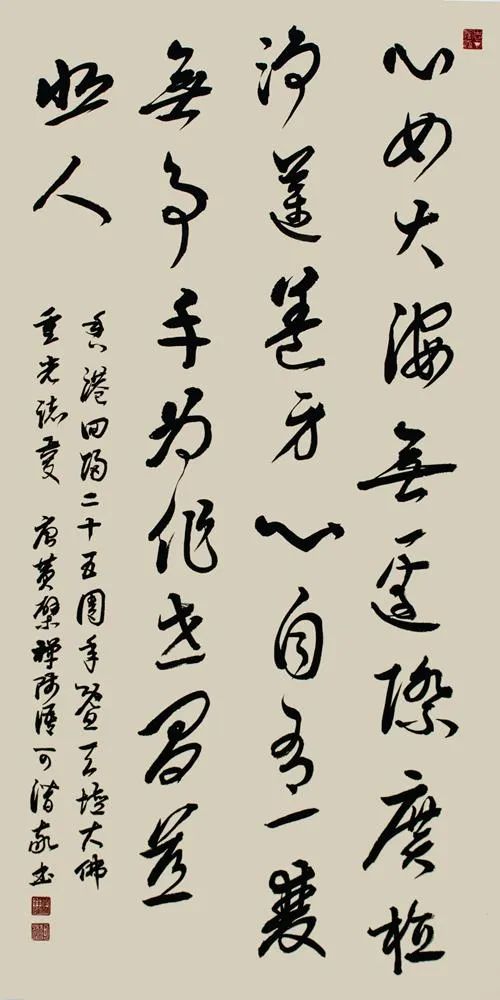 心如大海無邊際廣植
淨蓮養身心自有一雙
無事手為作世間慈
悲人
香港回歸二十五周年暨天壇大佛
重光誌慶 唐黃檗禪師語 可潛敬書